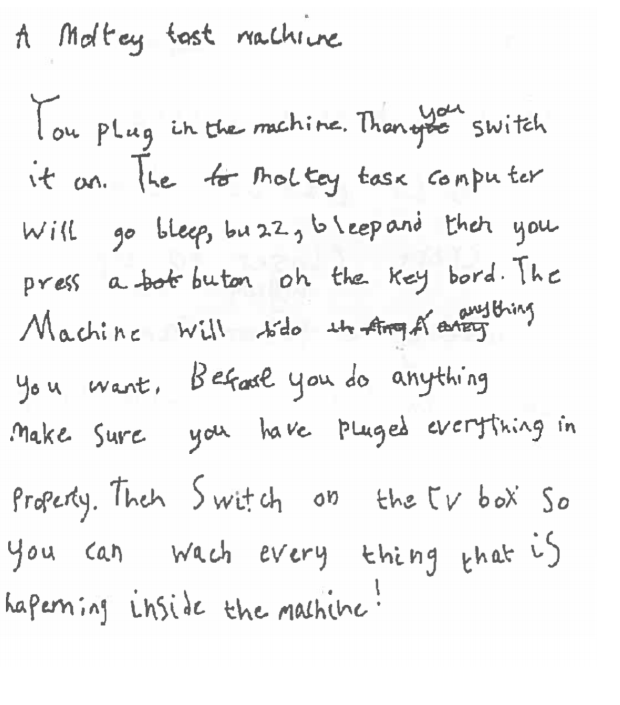 A Moltey tast machine
You plug in the machine. Than you switch
it on. The to moltey task computer
will go bleep, buzz, bleep and then you
press a bot buton on the key bord. The
Machine will do anything
you want. Before you do anything
make sure you have pluged everything in
Properly. Then Switch on the Tv box so
you can wach every thing that is
haperning inside the machine!